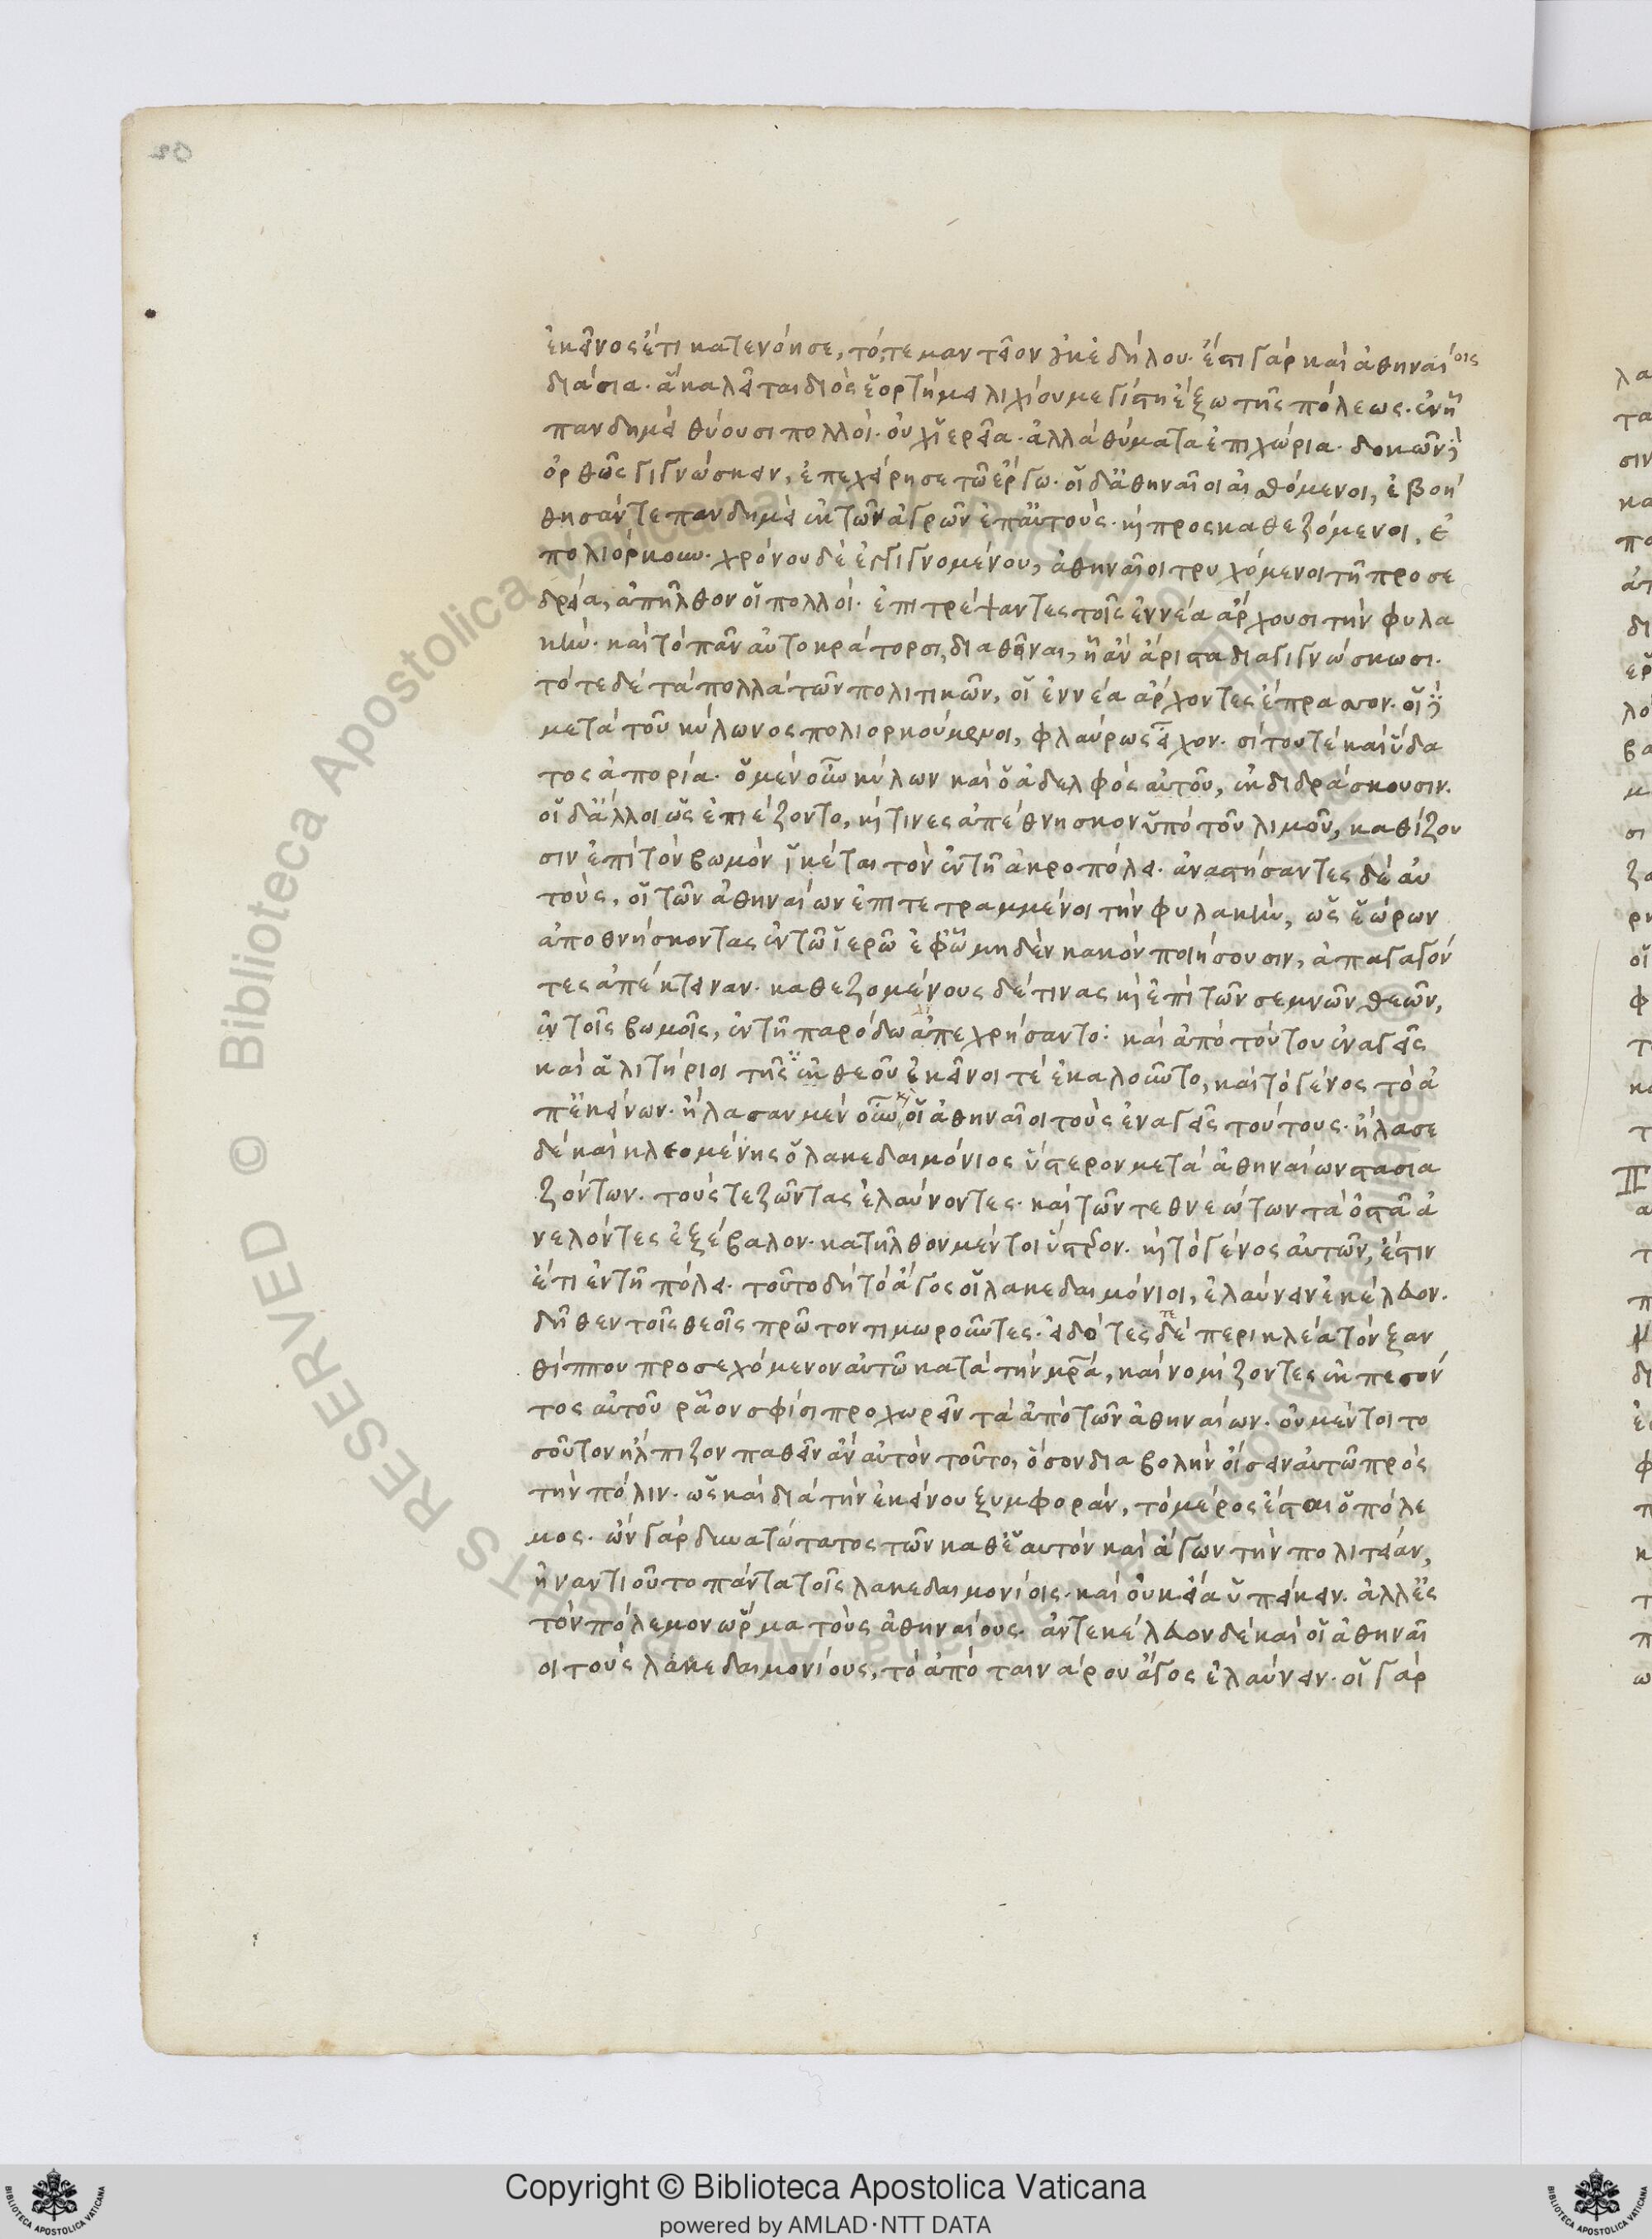 ἐκεῖνος ἔτι κατενόησε, τό, τε μαντεῖον οὐκ ἐδήλου. ἔστι γὰρ καὶ ἀθηναίοις
διάσια. ἃ καλεῖται διὸς ἑορτὴ μειλιχίου μεγίστη ἔξω τῆς πόλεως. ἐν ἧ
πανδημεὶ θύουσι πολλοὶ. οὐχ ἱερεῖα. ἀλλὰ θύματα ἐπιχώρια. δοκῶν δὲ
ὀρθῶς γιγνώσκειν, ἐπεχείρησε τῶ ἔργω. οἱ δ' ἀθηναῖοι αἰσθόμενοι, ἐβοή
θησάν τε πανδημεὶ ἐκ τῶν ἀγρῶν ἐπ' αὐτοὺς. καὶ προσκαθεζόμενοι, ἐ
πολιόρκουν. χρόνου δὲ ἐπιγιγνομένου, ἀθηναῖοι τρυχόμενοι τῆ προσε
δρεία, ἀπῆλθον οἱ πολλοί. ἐπιτρέψαντες τοῖς ἐννέα ἄρχουσι τὴν φυλα
κὴν. καὶ τὸ πᾶν αὐτοκράτορσι διαθεῖναι, ἧ ἂν ἄριστα διαγιγνώσκωσι.
τότε δὲ τὰ πολλὰ τῶν πολιτικῶν, οἱ ἐννέα ἄρχοντες ἔπρασσον. οἱ δὲ
μετὰ τοῦ κύλωνος πολιορκούμενοι, φλαύρως εἶχον. σίτου τὲ καὶ ὕδα
τος ἀπορία. ὁ μὲν οὖν κύλων καὶ ὁ ἀδελφὸς αὐτοῦ, ἐκδιδράσκουσιν.
οἱ δ' ἄλλοι ὡς ἐπιέζοντο, καί τινες ἀπέθνησκον ὑπὸ τοῦ λιμοῦ, καθίζου
σιν ἐπὶ τὸν βωμὸν ἱκέται τὸν ἐν τῆ ἀκροπόλει. ἀναστήσαντες δὲ αὐ
τοὺς, οἱ τῶν ἀθηναίων ἐπιτετραμμένοι τὴν φυλακὴν, ὡς ἑώρων
ἀποθνήσκοντας ἐν τῶ ἱερῶ ἐφ' ὧ μηδὲν κακὸν ποιήσουσιν, ἀπαγαγόν
τες ἀπέκτειναν. καθεζομένους δέ τινας καὶ ἐπὶ τῶν σεμνῶν θεῶν,
ἐν τοῖς βωμοῖς, ἐν τῆ παρόδω ἀπεχρήσαντο: καὶ ἀπὸ τούτου ἐναγεῖς
καὶ ἀλιτήριοι τῆς θεοῦ ἐκεῖνοι τὲ ἐκαλοῦντο, καὶ τὸ γένος τὸ ἀ
π' ἐκείνων. ἤλασαν μὲν οὖν καὶ οἱ ἀθηναῖοι τοὺς ἐναγεῖς τούτους. ἤλασε
δὲ καὶ κλεομένης ὁ λακεδαιμόνιος ὕστερον μετὰ ἀθηναίων στασια
ζόντων. τούς τε ζῶντας ἐλαύνοντες. καὶ τῶν τεθνεώτων τὰ ὀστᾶ ἀ
νελόντες ἐξέβαλον. κατῆλθον μέντοι ὕστερον. καὶ τὸ γένος αὐτῶν, ἔστιν
ἔτι ἐν τῆ πόλει. τοῦτο δὴ τὸ ἄγος οἱ λακεδαιμόνιοι, ἐλαύνειν ἐκέλευον.
δῆθεν τοῖς θεοῖς πρῶτον τιμωροῦντες. εἰδότες δὲ περικλέα τὸν ξαν
θίππου προσεχόμενον αὐτῶ κατὰ τὴν μητέρα, καὶ νομίζοντες ἐκπεσόν
τος αὐτοῦ ῥᾶον σφίσι προχωρεῖν τὰ ἀπὸ τῶν ἀθηναίων. οὐ μέντοι το
σοῦτον ἤλπιζον παθεῖν ἂν αὐτὸν τοῦτο, ὅσον διαβολὴν οἴσειν αὐτῶ πρὸς
τὴν πόλιν. ὡς καὶ διὰ τὴν ἐκείνου ξυμφορὰν, τὸ μέρος ἔσται ὁ πόλε
μος. ὢν γὰρ δυνατώτατος τῶν καθ' ἑαυτὸν καὶ ἄγων τὴν πολιτείαν,
ἠναντιοῦτο πάντα τοῖς λακεδαιμονίοις. καὶ οὐκ εἴα ὑπείκειν. ἀλλ' ἐς
τὸν πόλεμον ὥρμα τοὺς ἀθηναίους. ἀντεκέλευον δὲ καὶ οἱ ἀθηναῖ
οι τοὺς λακεδαιμονίους, τὸ ἀπὸ ταινάρου ἄγος ἐλαύνειν. οἱ γὰρ
Biblioteca Apostolica Vaticana
ALL RIGHTS RESERVED ©
Copyright © Biblioteca Apostolica Vaticana
powered by AMLAD·NTT DATA
BIBLIOTECA APOSTOLICA VATICANA
BIBLIOTECA APOSTOLICA VATICANA